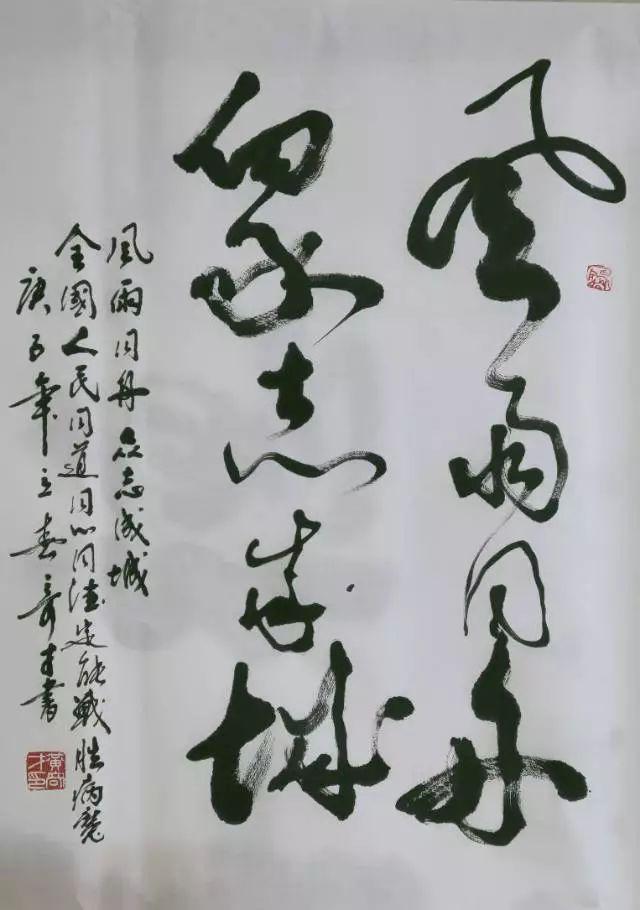 風雨同舟
衆志成城
風雨同舟众志成城
全國人民同道同心同德定能戰勝病魔
庚子年立春奇才書